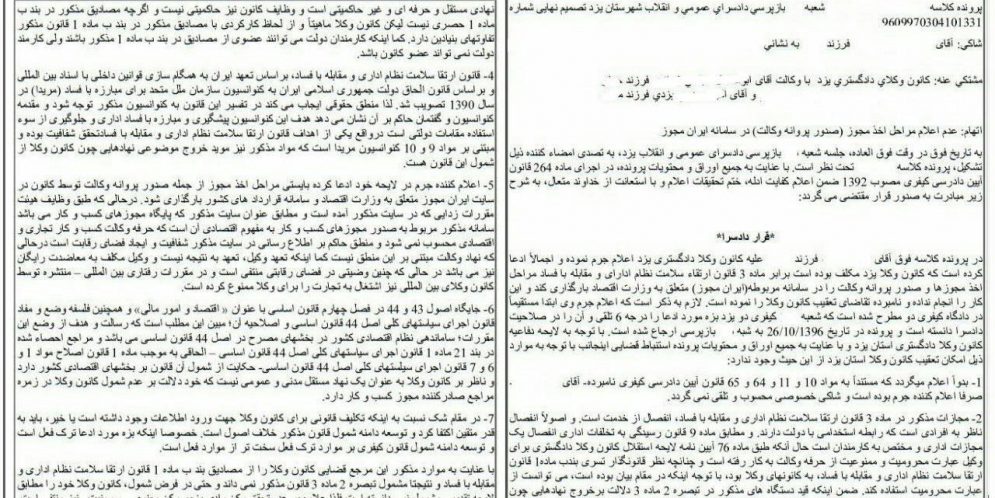 پرونده کلاسه شعبه بازپرسي دادسراي عمومي و انقلاب شهرستان يزد تصميم نهايی شماره
9609970304101331
شاکی: آقای فرزند به نشانی
مشتکی عنه: کانون وکلای دادگستری یزد با وکالت آقای فرزند
و آقای یزدی فرزند
اتهام: عدم اعلام مراحل اخذ مجوز (صدور پروانه وکالت) در سامانه ایران مجوز
به تاریخ فوق در وقت فوق العاده، جلسه شعبه بازپرسی دادسرای عمومی و انقلاب یزد، به تصدی امضاء کننده ذیل
تشکیل، پرونده کلاسه تحت نظر است. با عنایت به جمیع اوراق و محتویات پرونده، در اجرای ماده 264 قانون
آیین دادرسی کیفری مصوب 1392 ضمن اعلام کفایت ادله، ختم تحقیقات اعلام و با استعانت از خداوند متعال، به شرح
زیر مبادرت به صدور قرار مقتضی می گردند:
*قرار دادسرا*
در پرونده کلاسه فوق آقای فرزند علیه کانون وکلا دادگستری یزد اعلام جرم نموده و اجمالا ادعا
کرده است که کانون وکلا یزد مکلف بوده است برابر ماده 3 قانون ارتقاء سلامت نظام اداری و مقابله با فساد مراحل
اخذ مجوزها و صدور پروانه وکالت را در سامانه مربوطه(ایران مجوز) متعلق به وزارت اقتصاد بارگذاری کند و این
کار را انجام نداده و نامبرده تقاضای تعقیب کانون وکلا را نموده است. لازم به ذکر است که اعلام جرم وی ابتدا مستقیماً
در دادگاه کیفری دو مطرح شده است که شعبه کیفری دو یزد بزه مورد ادعا را درجه 6 تلقی و آن را در صلاحیت
دادسرا دانسته است و پرونده در تاریخ 26/10/1396 به شعبه بازپرسی ارجاع شده است. با توجه به لایحه دفاعیه
کانون وکلا دادگستری استان یزد و با عنایت به جمیع اوراق و محتویات پرونده استنباط قضایی اینجانب با توجه به موارد
ذیل امکان تعقیب کانون وکلا استان یزد از این حیث وجود ندارد:
1- بدوأ اعلام میگردد که مستنداً به مواد 10 و 11 و 64 و 65 قانون آیین دادرسی کیفری نامبرده- آقای
صرفا اعلام کننده جرم بوده است و شاکی خصوصی محسوب و تلقی نمی گردد.
2- مجازات مذکور در ماده 3 قانون ارتقا سلامت نظام اداری و مقابله با فساد، انفصال از خدمت است. و اصولاً انفصال
ناظر به افرادی است که رابطه استخدامی با دولت دارند. و مطابق ماده 9 قانون رسیدگی به تخلفات اداری انفصال یک
مجازات اداری و مختص به کارمندان است حال آنکه طبق ماده 76 آیین نامه لایحه استقلال کانون وکلا دادگستری برای
وکیل عبارت محرومیت و ممنوعیت از حرفه وکالت به کار رفته است و چنانچه نظر قانونگذار تسری بندب ماده1 قانون
ارتقا سلامت نظام اداری و مقابله با فساد، به کانونهای وکلا بود، با توجه به اینکه در مقام بیان بوده است، می توانست از
عبارت محرومیت استفاده کند. ضمن اینکه قید دستگاه های مذکور در تبصره 2 ماده 3 دلالت برخروج نهادهایی چون
نهادی مستقل و حرفه ای و غیر حاکمیتی است و وظایف کانون نیز حاکمیتی نیست و اگرچه مصادیق مذکور در بند ب
ماده 1 حصری نیست لیکن کانون وکلا ماهیتاً و از لحاظ کارکردی با مصادیق مذکور در بند ب ماده 1 قانون مذکور
تفاوتهای بنیادین دارد. کما اینکه کارمندان دولت می توانند عضوی از مصادیق در بند ب ماده 1 مذکور باشند ولی کارمند
دولت نمی تواند عضو کانون باشد.
4- قانون ارتقا سلامت نظام اداری و مقابله با فساد، بر اساس تعهد ایران به همگام سازی قوانین داخلی با اسناد بین المللی
و براساس قانون الحاق دولت جمهوری اسلامی ایران به کنوانسیون سازمان ملل متحد برای مبارزه با فساد (مریدا) در
سال 1390 تصویب شد. لذا منطق حقوقی ایجاب می کند در تفسیر این قانون به کنوانسیون مذکور توجه شود و مقدمه
کنوانسیون و گفتمان حاکم بر آن نشان می دهد هدف این کنوانسیون پیشگیری و مبارزه با فساد اداری و جلوگیری از سوء
استفاده مقامات دولتی است درواقع یکی از اهداف قانون ارتقا سلامت نظام اداری و مقابله با فسادتحقق شفافیت بوده و
مبتنی بر مواد 9 و 10 کنوانسیون مریدا است که مواد مذکور نیز موید خروج موضوعی نهادهایی چون کانون وکلا از
شمول این قانون هست.
5- اعلام کننده جرم در لایحه خود ادعا کرده بایستی مراحل اخذ مجوز از جمله صدور پروانه وکالت توسط کانون در
سایت ایران مجوز متعلق به وزارت اقتصاد و سامانه قرارداد های کشور بارگذاری شود. درحالی که طبق وظایف هیئت
مقررات زدایی که در سایت مذکور آمده است و مطابق عنوان سایت مذکور که پایگاه مجوزهای کسب و کار می باشد
سامانه مذکور مربوط به صدور مجوزهای کسب و کار به مفهوم اقتصادی آن است که حرفه وکالت کسب و کار تجاری و
اقتصادی محسوب نمی شود و منطق حاکم بر اطلاع رسانی در سایت مذکور شفافیت و ایجاد فضای رقابت است درحالی
که نهاد وکالت مبتنی بر این منطق نیست کما اینکه تعهد وکیل، تعهد به نتیجه نیست و وکیل مکلف به معاضدت رایگان
نیز می باشد در حالی که چنین وضیتی در فضای رقابتی منتفی است و در مقررات رفتاری بین المللی – منتشره توسط
کانون وکلای بین المللی نیز اشتغال به تجارت را برای وکلا ممنوع کرده است.
6- جایگاه اصول 43 و 44 در فصل چهارم قانون اساسی با عنوان «اقتصاد و امور مالی» و همچنین فلسفه وضع و مفاد
قانون اجرای سیاستهای کلی اصل 44 قانون اساسی و اصلاحیه آن؛ مبین این مطلب است که رسالت و هدف از وضع این
مقررات؛ ساماندهی نظام اقتصادی کشور در بخشهای مصرح در اصل 44 قانون اساسی می باشد و مراجع احصاء شده
در بند 21 ماده 1 قانون اجرای سیاستهای کلی اصل 44 قانون اساسی – الحاقی به موجب ماده 1 قانون اصلاح مواد 1 و
6 و 7 قانون اجرای سیاستهای کلی اصل 44 قانون اساسی- حکایت از شمول آن قانون بر بخشهای اقتصادی کشور دارد
و ناظر بر کانون وکلا به عنوان یک نهاد مستقل مدنی و عمومی نیست که خود دلالت بر عدم شمول کانون وکلا در زمره
مراجع صادرکننده مجوز کسب و کار دارد.
7- در مقام شک نسبت به اینکه تکلیف قانونی برای کانون وکلا جهت ورود اطلاعات وجود داشته است یا خیر، باید به
قدر متقین اکتفا کرد و توسعه دامنه شمول قانون مذکور خلاف اصول است. خصوصا اینکه بزه مورد ادعا ترک فعل است
و توسعه دامنه شمول قانون کیفری بر موارد ترک فعل سخت تر از موارد فعل است.
با عنایت به موارد مذکور این مرجع قضایی کانون وکلا را از مصادیق بند ب ماده 1 قانون ارتقا سلامت نظام اداری و
مقابله با فساد و نتیجتا مشمول تبصره 2 ماده 3 قانون مذکور نمی داند و حتی در فرض شمول، کانون وکلا را تابع